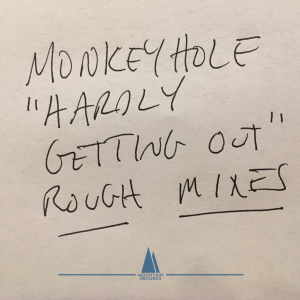 MONKEYHOLE
"HARDLY
GETTING OUT"
ROUGH MIXES
MOUNTAIN
RECORDS